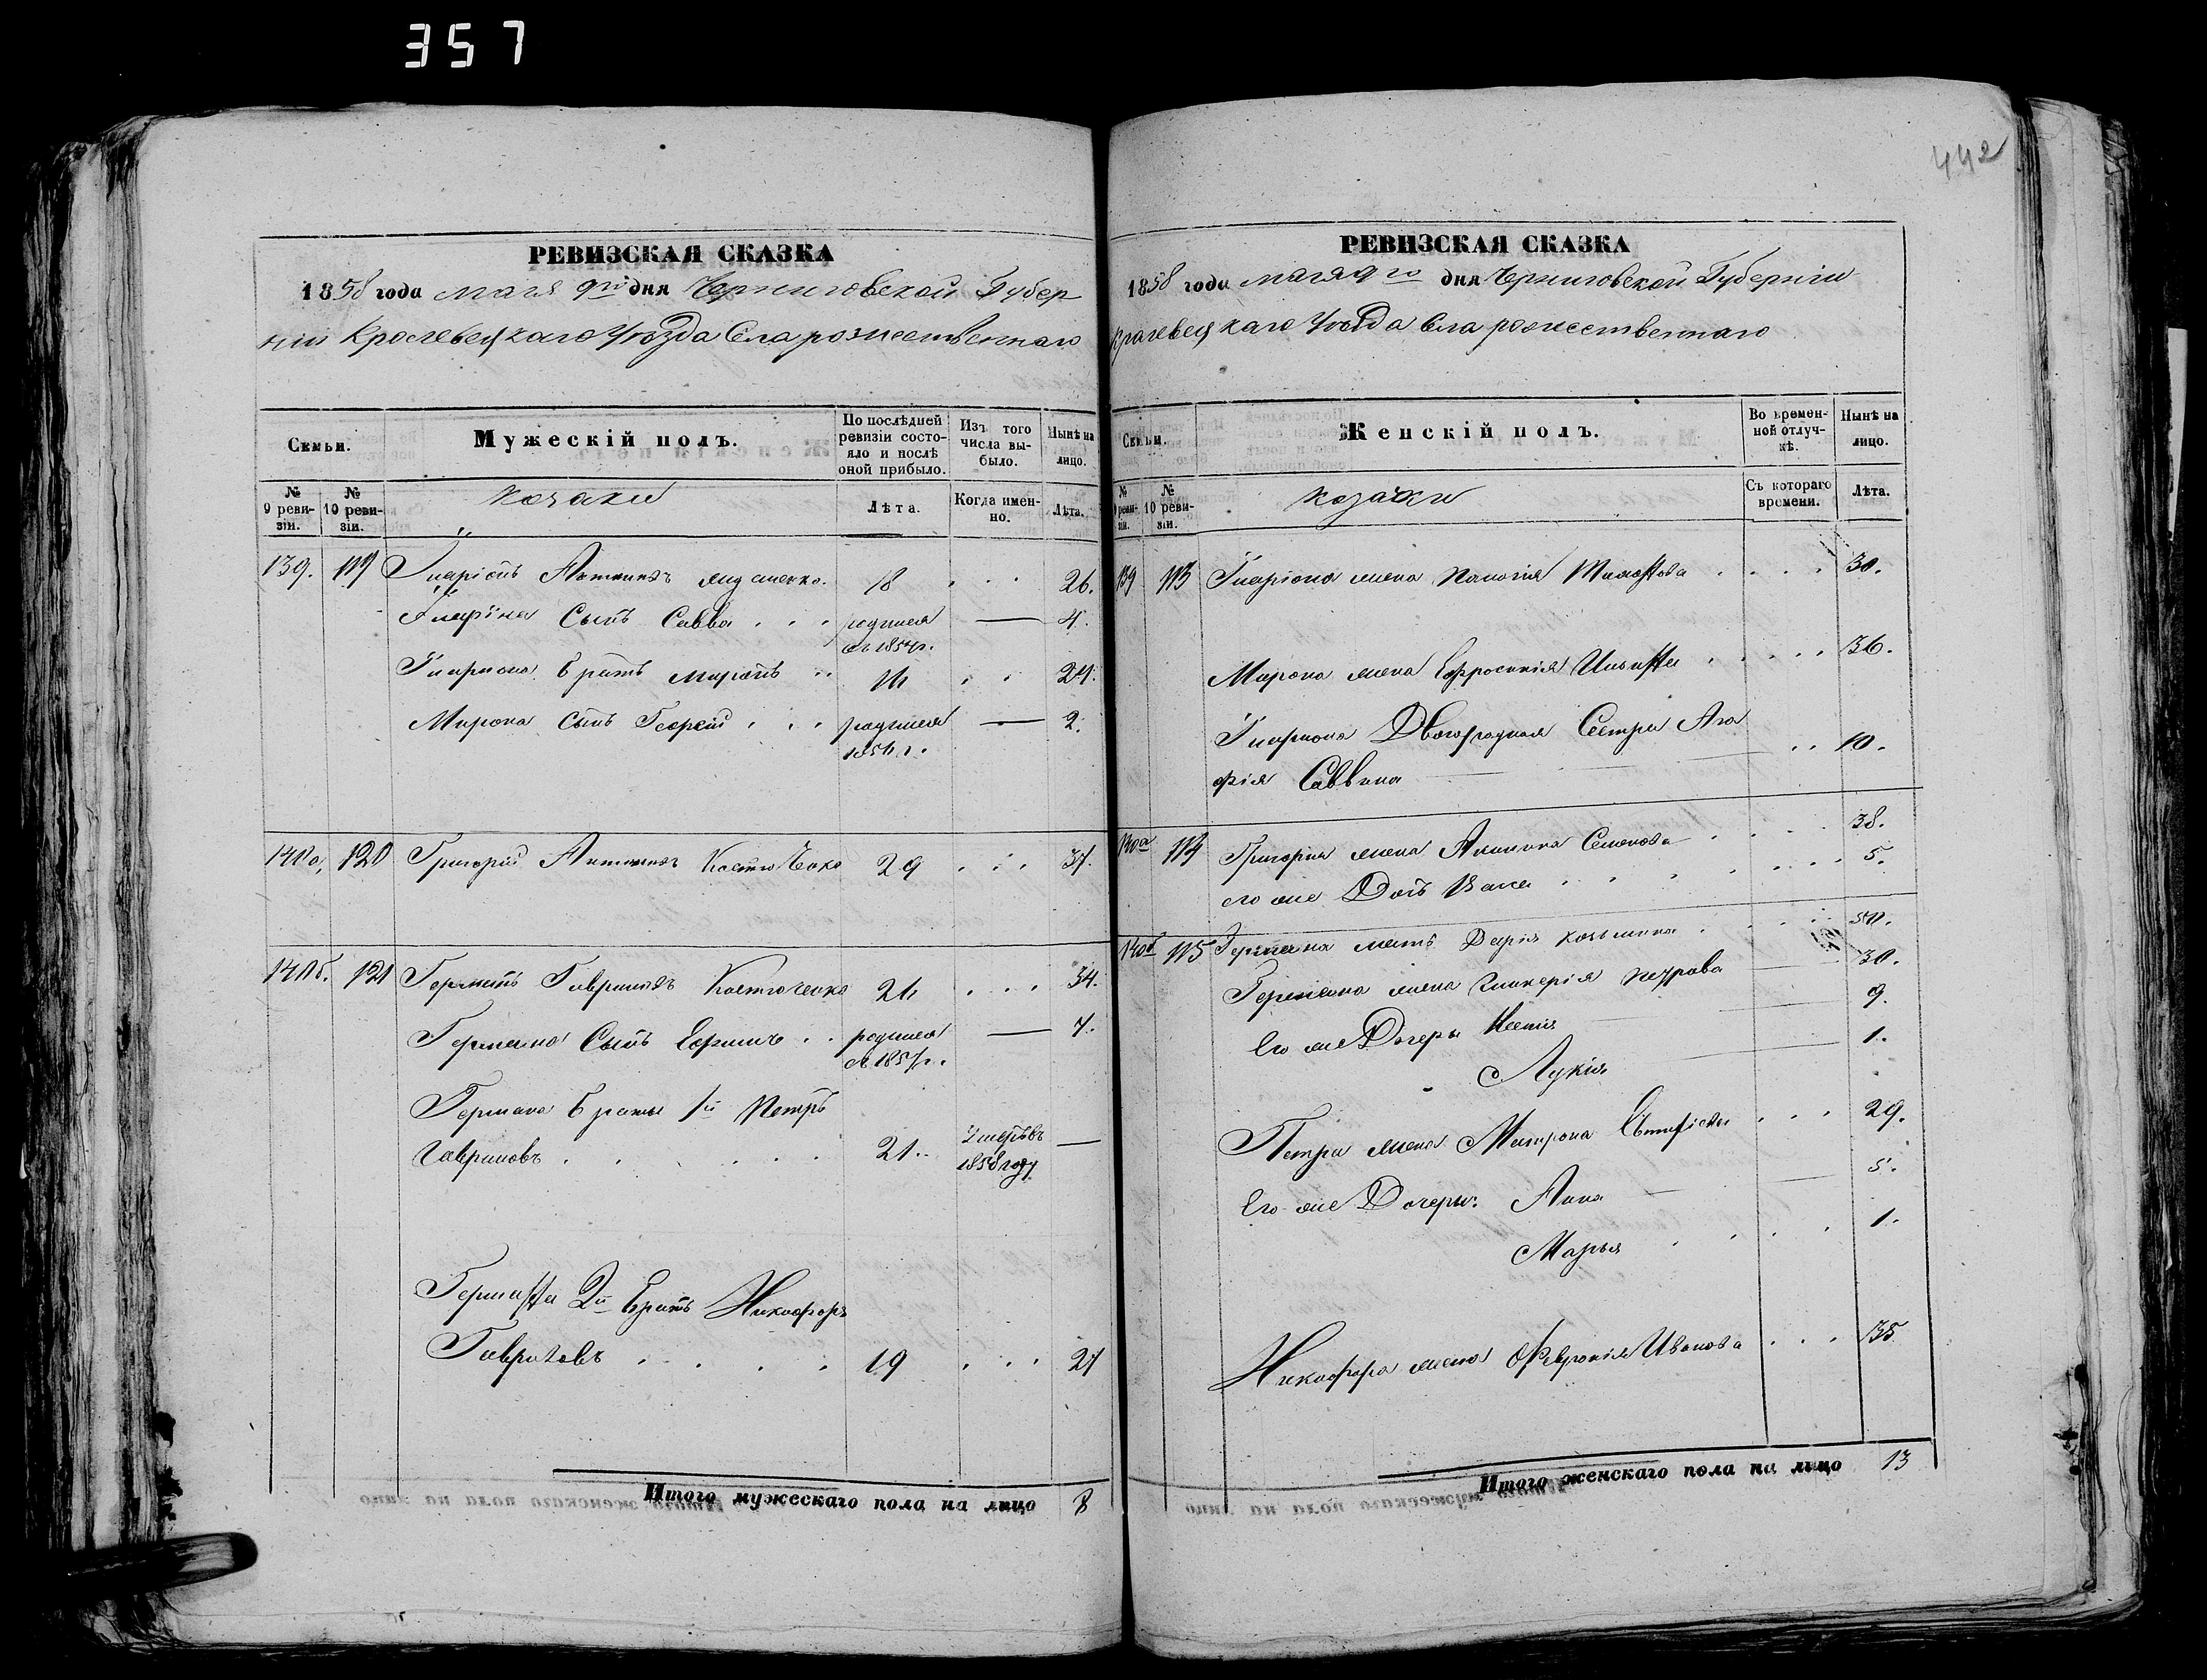 357
442
РЕВИЗСКАЯ СКАЗКА
1858 года мая 9го дня Черниговской Губер
ніи Кролевецкаго Уѣзда Села рожественнаго
Семьи.
Мужескій полъ.
По послѣдней ревизіи состояло и послѣ оной прибыло.
Изъ того числа выбыло.
Нынѣ на лицо.
№ 9 ревизіи.
№ 10 ревизіи.
козаки
Лѣта.
Когда именно.
Лѣта.
139. 119 Иларіонъ 18 . . . 26.
Сынъ Савва . . . родился въ 1854 г. — 4.
Иларiона братъ Миронъ . . 16 . . 24.
Мирона сынъ Георгій . . . родился 1856 г. — 2.
140а, 120 Григорій Костюченко 29 . . . 37.
140б. 121 Германъ Гавриловъ Костюченко 26 . . . 34.
Германа Сынъ Ефимъ . . родился въ 1851 г. — 7.
Германа братья 1й Петръ
Гавриловъ . . . . . 21. умеръ въ 1858 году —
Германа 2й братъ Никифоръ
Гавриловъ . . . . 19 . . . 27
Итого мужескаго пола на лицо 8
РЕВИЗСКАЯ СКАЗКА
1858 года мая 9го дня Черниговской Губерніи
Кролевецкаго Уѣзда Села рожественнаго
Семьи.
Женскій полъ.
Во временной отлучкѣ.
Нынѣ на лицо.
№ 9 ревизіи.
№ 10 ревизіи.
козачки
Съ котораго времени.
Лѣта.
139 113 Иларіона жена . . . . 30.
Мирона жена Ефросинія . . . . . 36.
Иларіона Двоюродная Сестра Ага
фія Саввина . . 10.
140а 114 Григорія жена Акилина Семенова . . . . 38.
его же Дочь . . . . . 5.
140б 115 Германа мать Дарія Козьмина . . . . 50.
Германа жена Гликерія Петрова 30.
Его же Дочери Ксенія 9.
Лукія 1.
Петра жена Матрона . . . 29.
Его же Дочери: Анна 5.
Марья . . . . 1.
Никифора жена Февронія Иванова . . . 35
Итого женскаго пола на лицо 13